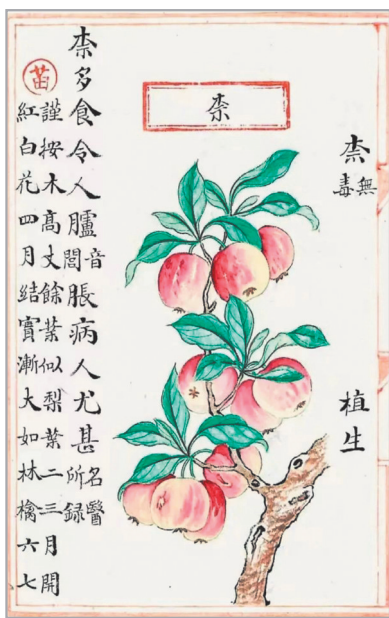 柰無毒
植生
柰
柰多食令人臚音閭脹病人尤甚名醫所錄
苗
謹按木高丈餘葉似梨葉二三月開
紅白花四月結實漸大如林檎六七